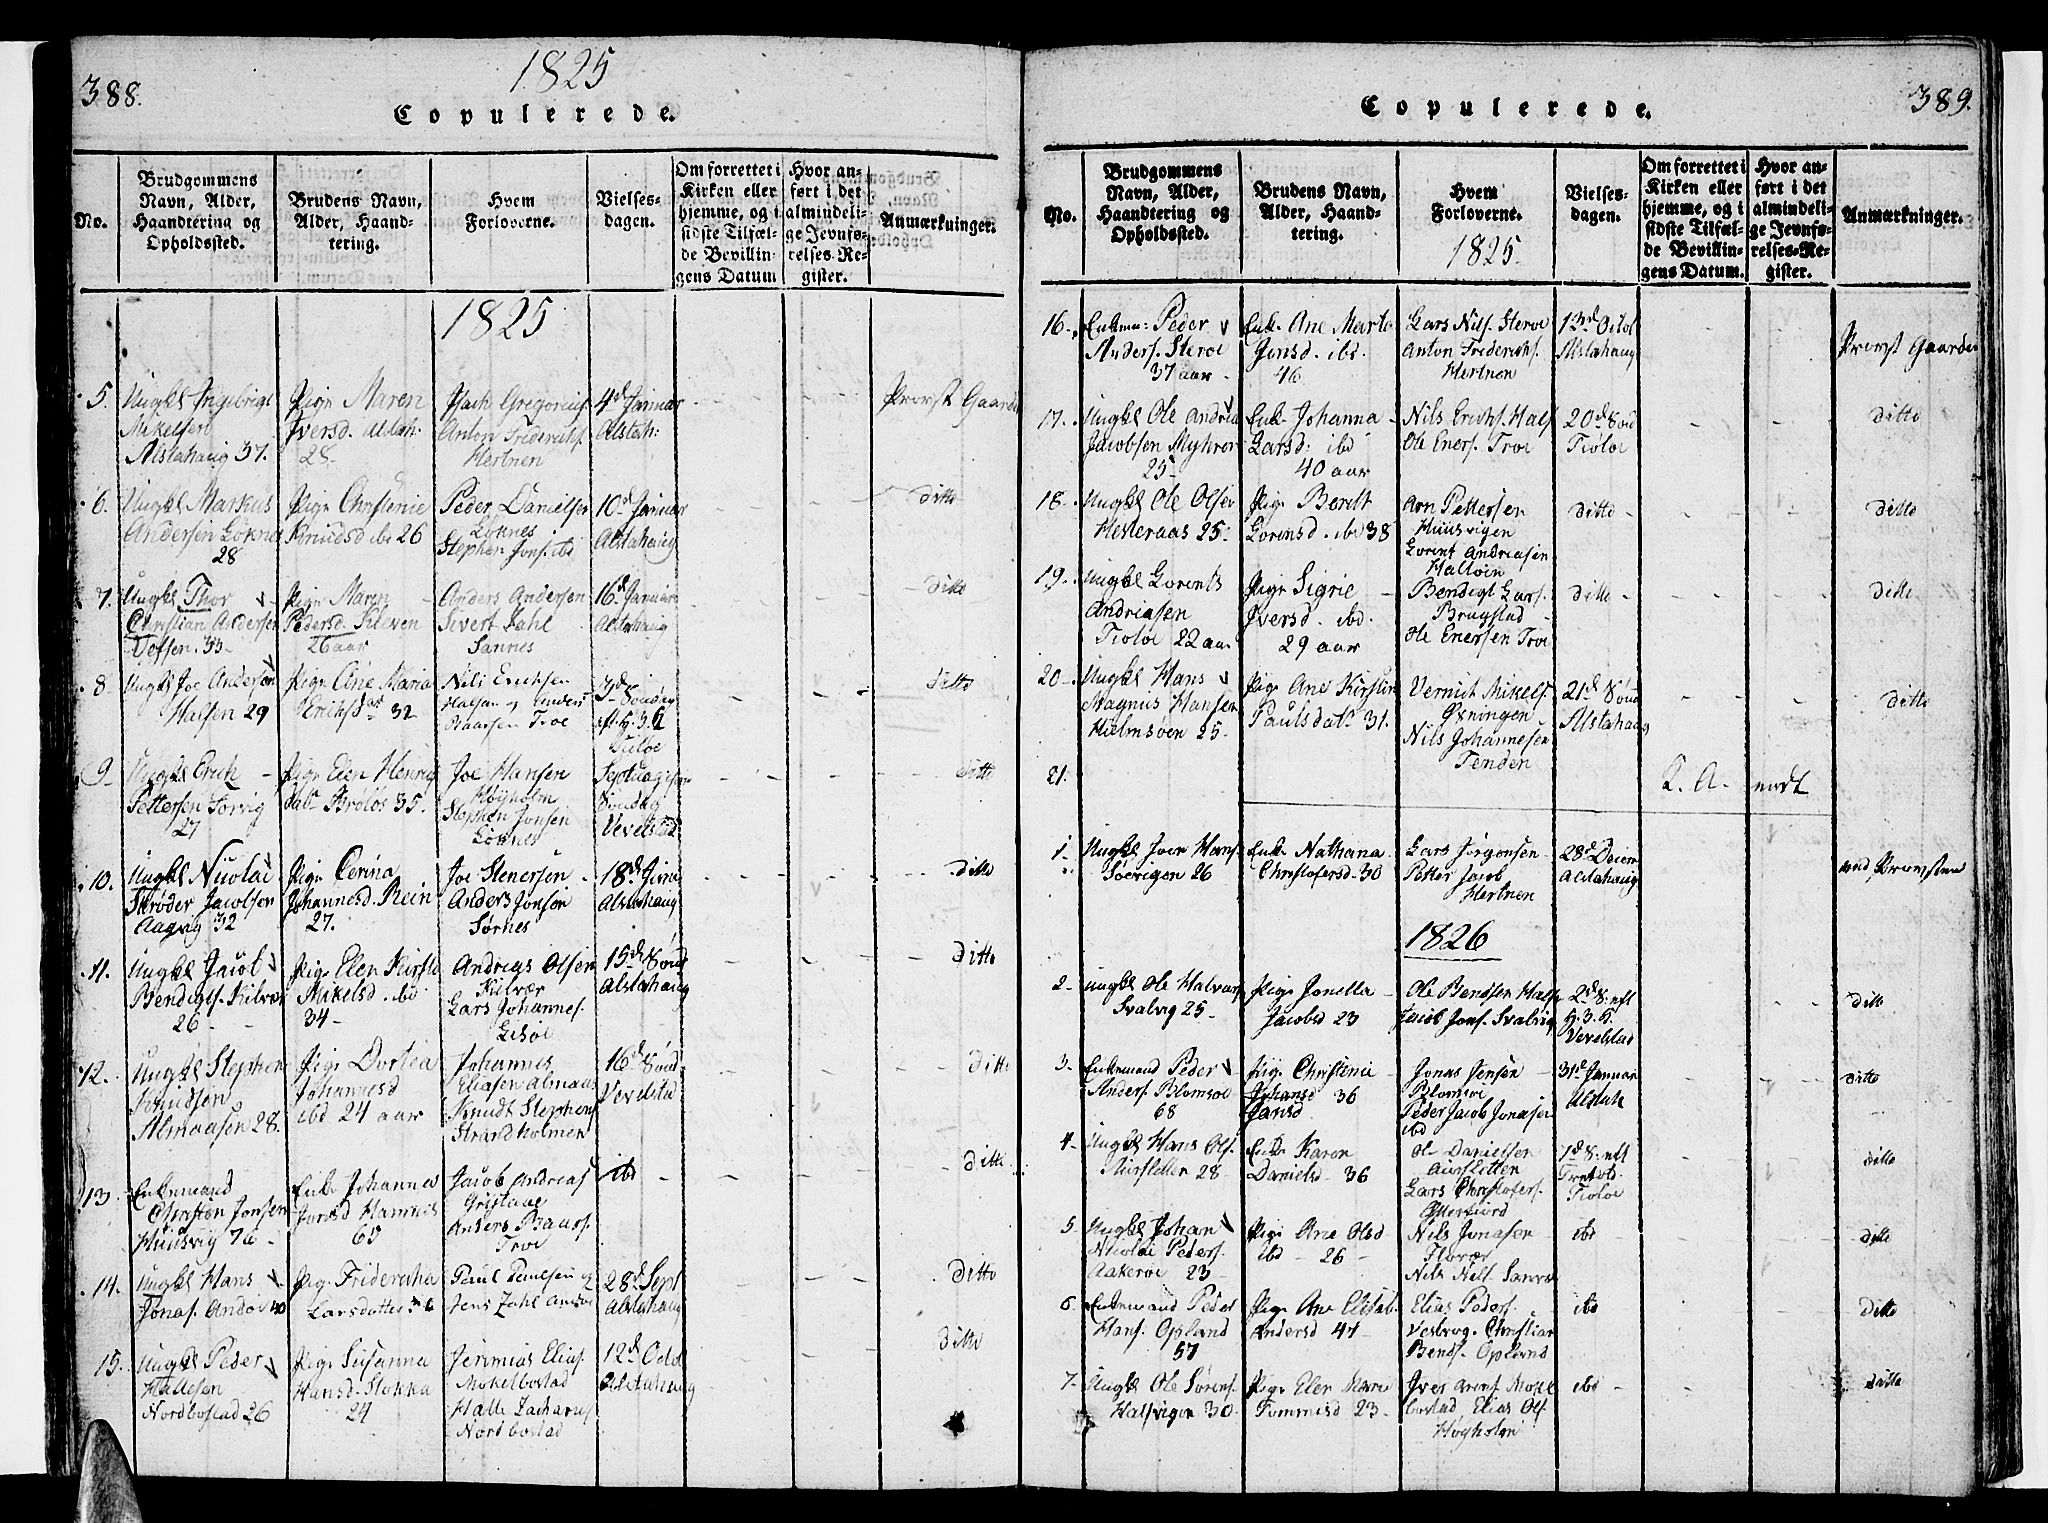 388.
1825
Copulerede.
No.
Brudgommens
Navn, Alder,
Haandtering og
Opholdssted.
Brudens Navn,
Alder, Haand-
tering.
Hvem
Forloverne.
Vielses-
dagen.
Om forrettet i
Kirken eller
hjemme, og i
sidste Tilfæl-
de Bevillin-
gens Datum
Hvor an-
ført i det
almindeli-
ge Jevnfø-
relses-Re-
gister.
Anmærkninger.
1825
5.
Ungkl Ingebrigt
Mikelsen
Alstahaug 37.
Pige Maren
Iversd. Alstah:
28.
Isach Gregorius
Anton Friderichs.
Hertnen
4d Januar
Alstah:
Provst Gaarde
6.
Ungkl Markus
Andersen Löknes
28
Pige Christenie
Knudsd ibd 26
Peder Danielsen
Löknes
Stephen Jons. ibd
10d Januar
Alstahaug
ditto
7.
Ungkl Thor
Christian Andersen
33
Pige Maren
Pedersd Kleven
26 aar
Anders Andersen
Sivert Dahl
Sannes
16d Januar
Alstahaug
ditto
8.
Ungkl Joe Andersen
Halsen 29
Pige Ane Maria
Eriksdr 32
Nils Erichsen
Halsen og
Baarsen Troe
3d Sønd
eft. H. 3 K
Tiøløe
ditto
9.
Ungkl Erich
Pettersen Sørvig
27
Pige Elen Henrig
dat Brölös 35.
Joe Hansen
Høyholm
Stephen Jonsen
Löknes
Søndag
Vevelstad
ditto
10.
Ungkl Nicolai
Schrøder Jacobsen
Aagvig 32
Pige Cerina
Johannesd. Rein
27.
Joe Stenersen
Anders Jonsen
Sørnes
18d Juni
Alstahaug
ditto
11.
Ungkl Jacob
Bendigts. Kilvær
26
Pige Elen Kirstie
Mikelsd. ibd
34
Andreas Olsen
Kilvær
Lars Johannes.
15d Sønd
Alstahaug
ditto
12.
Ungkl Stephen
Knudsen
Almaasen 28.
Pige Dortea
Johannesd
ibd 24 aar
Johannes
Eliasen Almaas
Knudt Stephens
Strandholmen
16d Sønd
Vevelstad
ditto
13.
Enkemand
Christen Jonsen
Huusvig 76
Enke Johannes
Jonsd Hamnes
65
Jacob Andreas
Anders Baars.
Troe
ibd
ditto
14.
Ungkl Hans
Jonas. Andøe 40
Pige Friderecha
Larsdatter
Paul Paulsen og
Jens Dahl Andøe
28d Sept
Alstahaug
ditto
15.
Ungkl Peder
Hallesen
Nordbostad 26
Pige Susanna
Hansd. Stokka
24
Jerimias Elias.
Mokelbostad
Halle Zacharis
Nordbostad
12d Octob
Alstahaug
ditto
389.
Copulerede.
No.
Brudgommens
Navn, Alder,
Haandtering og
Opholdssted.
Brudens Navn,
Alder, Haand-
tering.
Hvem
Forloverne.
1825.
Vielses-
dagen.
Om forrettet i
Kirken eller
hjemme, og i
sidste Tilfæl-
de Bevillin-
gens Datum.
Hvor an-
ført i det
almindeli-
ge Jevnfø-
relses-Re-
gister.
Anmærkninger.
16.
Enkem: Peder
Anders. Steroe
37 aar
Enke Ane Marte
Jensd. ibd.
46
Lars Nils. Steroe
Anton Friderichs.
Hertnen
13d Octob
Alstahaug
Provst Gaarde
17.
Ungkl Ole Andrea
Jacobsen Myhren
25
Enke Johanna
Larsd: ibd
40 aar
Nils Erichs. Hals
Ole Eners. Troe
20d Sønd
Tioløe
ditto
18.
Ungkl Ole Olsen
Hesteraas 25.
Pige Berdt
Lorensd. ibd 38
Arn Pettersen
Huusvigen
Lorent Andreasen
Halsøen
ditto
ditto
19.
Ungkl Lorents
Andreasen
Tioløe 22 aar
Pige Sigrie
Iversd. ibd.
29 aar
Bendigt Lars.
Brugstad
Ole Enersen Troe
ditto
ditto
20
Ungkl Hans
Magnus Hansen
Hielmsøen 25.
Pige Ane Kirstin
Paulsdatr 31.
Vernich Mikels.
Øxningen
Nils Johannesen
Tenden
21d Sønd
Alstahaug
ditto
21.
K. A. endt
1.
Ungkl Joen Hans.
Søevigen 26
Enke Nathana
Christofersd. 30
Lars Jørgensen
Petter Jacob
Hertnen
28d Decem
Alstahaug
ved Provsten
1826
2.
Ungkl Ole Halvars.
Svalvig 25
Pige Jonella
Jacobsd 23
Ole Bendsen Hals
Jacob Jons. Svalvig
2d S. eft
H. 3. K.
Vevelstad
ditto
3.
Enkemand Peder
Anders. Blomsøe
68
Pige Christenie
Johansd 36
Jansd
Jonas Jensen
Blomsøe
Peder Jacob Jonasen
ibd
31d Januar
Alstah
ditto
4.
Ungkl Hans Ols.
Aursletten 28
Enke Karen
Danielsd 36
Ole Danielsen
Aursletten
Lars Christofers.
1d S. eft
Tioløe
ditto
5.
Ungkl Johan
Nicolai Peders.
Aakerøe 23
Pige Ane Olsd
ibd 26
Nils Jonasen
Flovær
Nils Nils.
ibd
ditto
6.
Enkemand Peder
Hans. Opland
57
Pige Ane Elisab.
Andersd 47
Elias Peders.
Vesbvog. Christian
Bends. Opland
ibd
ditto
7.
Ungkl Ole Sørens.
Halsvigen 30
Pige Elen Mare
Tommisd 23
Iver Arens. Mokl
bostad Elias Ols
Høgholm
ibd
ditto